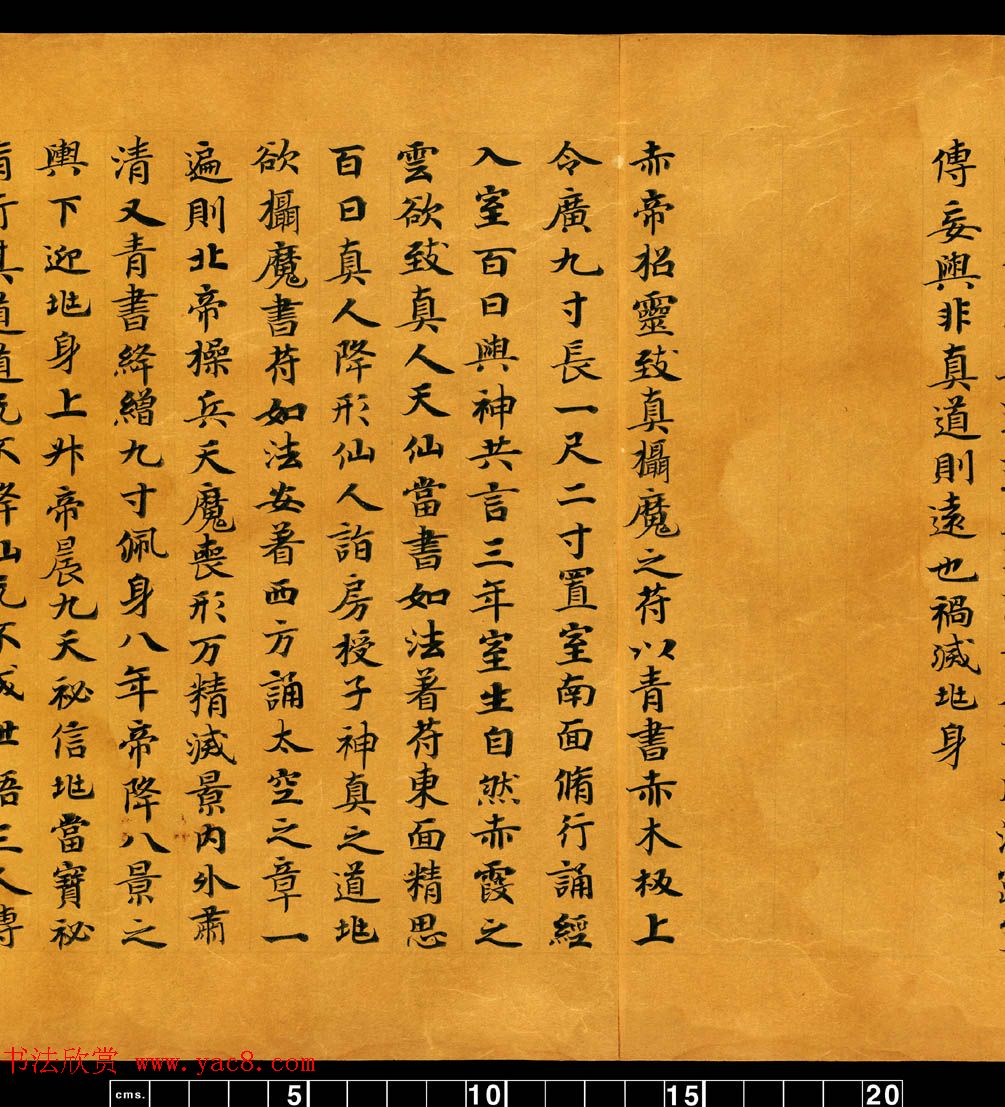 傳妄與非真道則遠也禍滅兆身
赤帝招靈致真攝魔之符以青書赤木板上
令廣九寸長一尺二寸置室南面脩行誦經
入室百日與神共言三年室生自然赤霞之
雲欲致真人天仙當書如法着符東面精思
百日真人降形仙人詣房授子神真之道兆
欲攝魔書符如法安着西方誦太空之章一
遍則北帝操兵天魔喪形万精滅景內外肅
清又青書絳繒九寸佩身八年帝降八景之
輿下迎兆身上升帝晨九天祕信兆當寶祕
书法欣赏 www.yac8.com
cms. 5 10 15 20